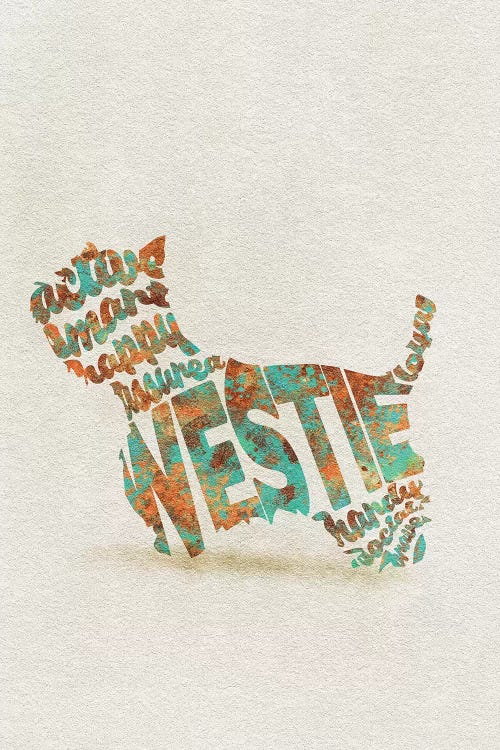 active
smart
happy
assured
WESTIE
loyal
hardy
social
brave